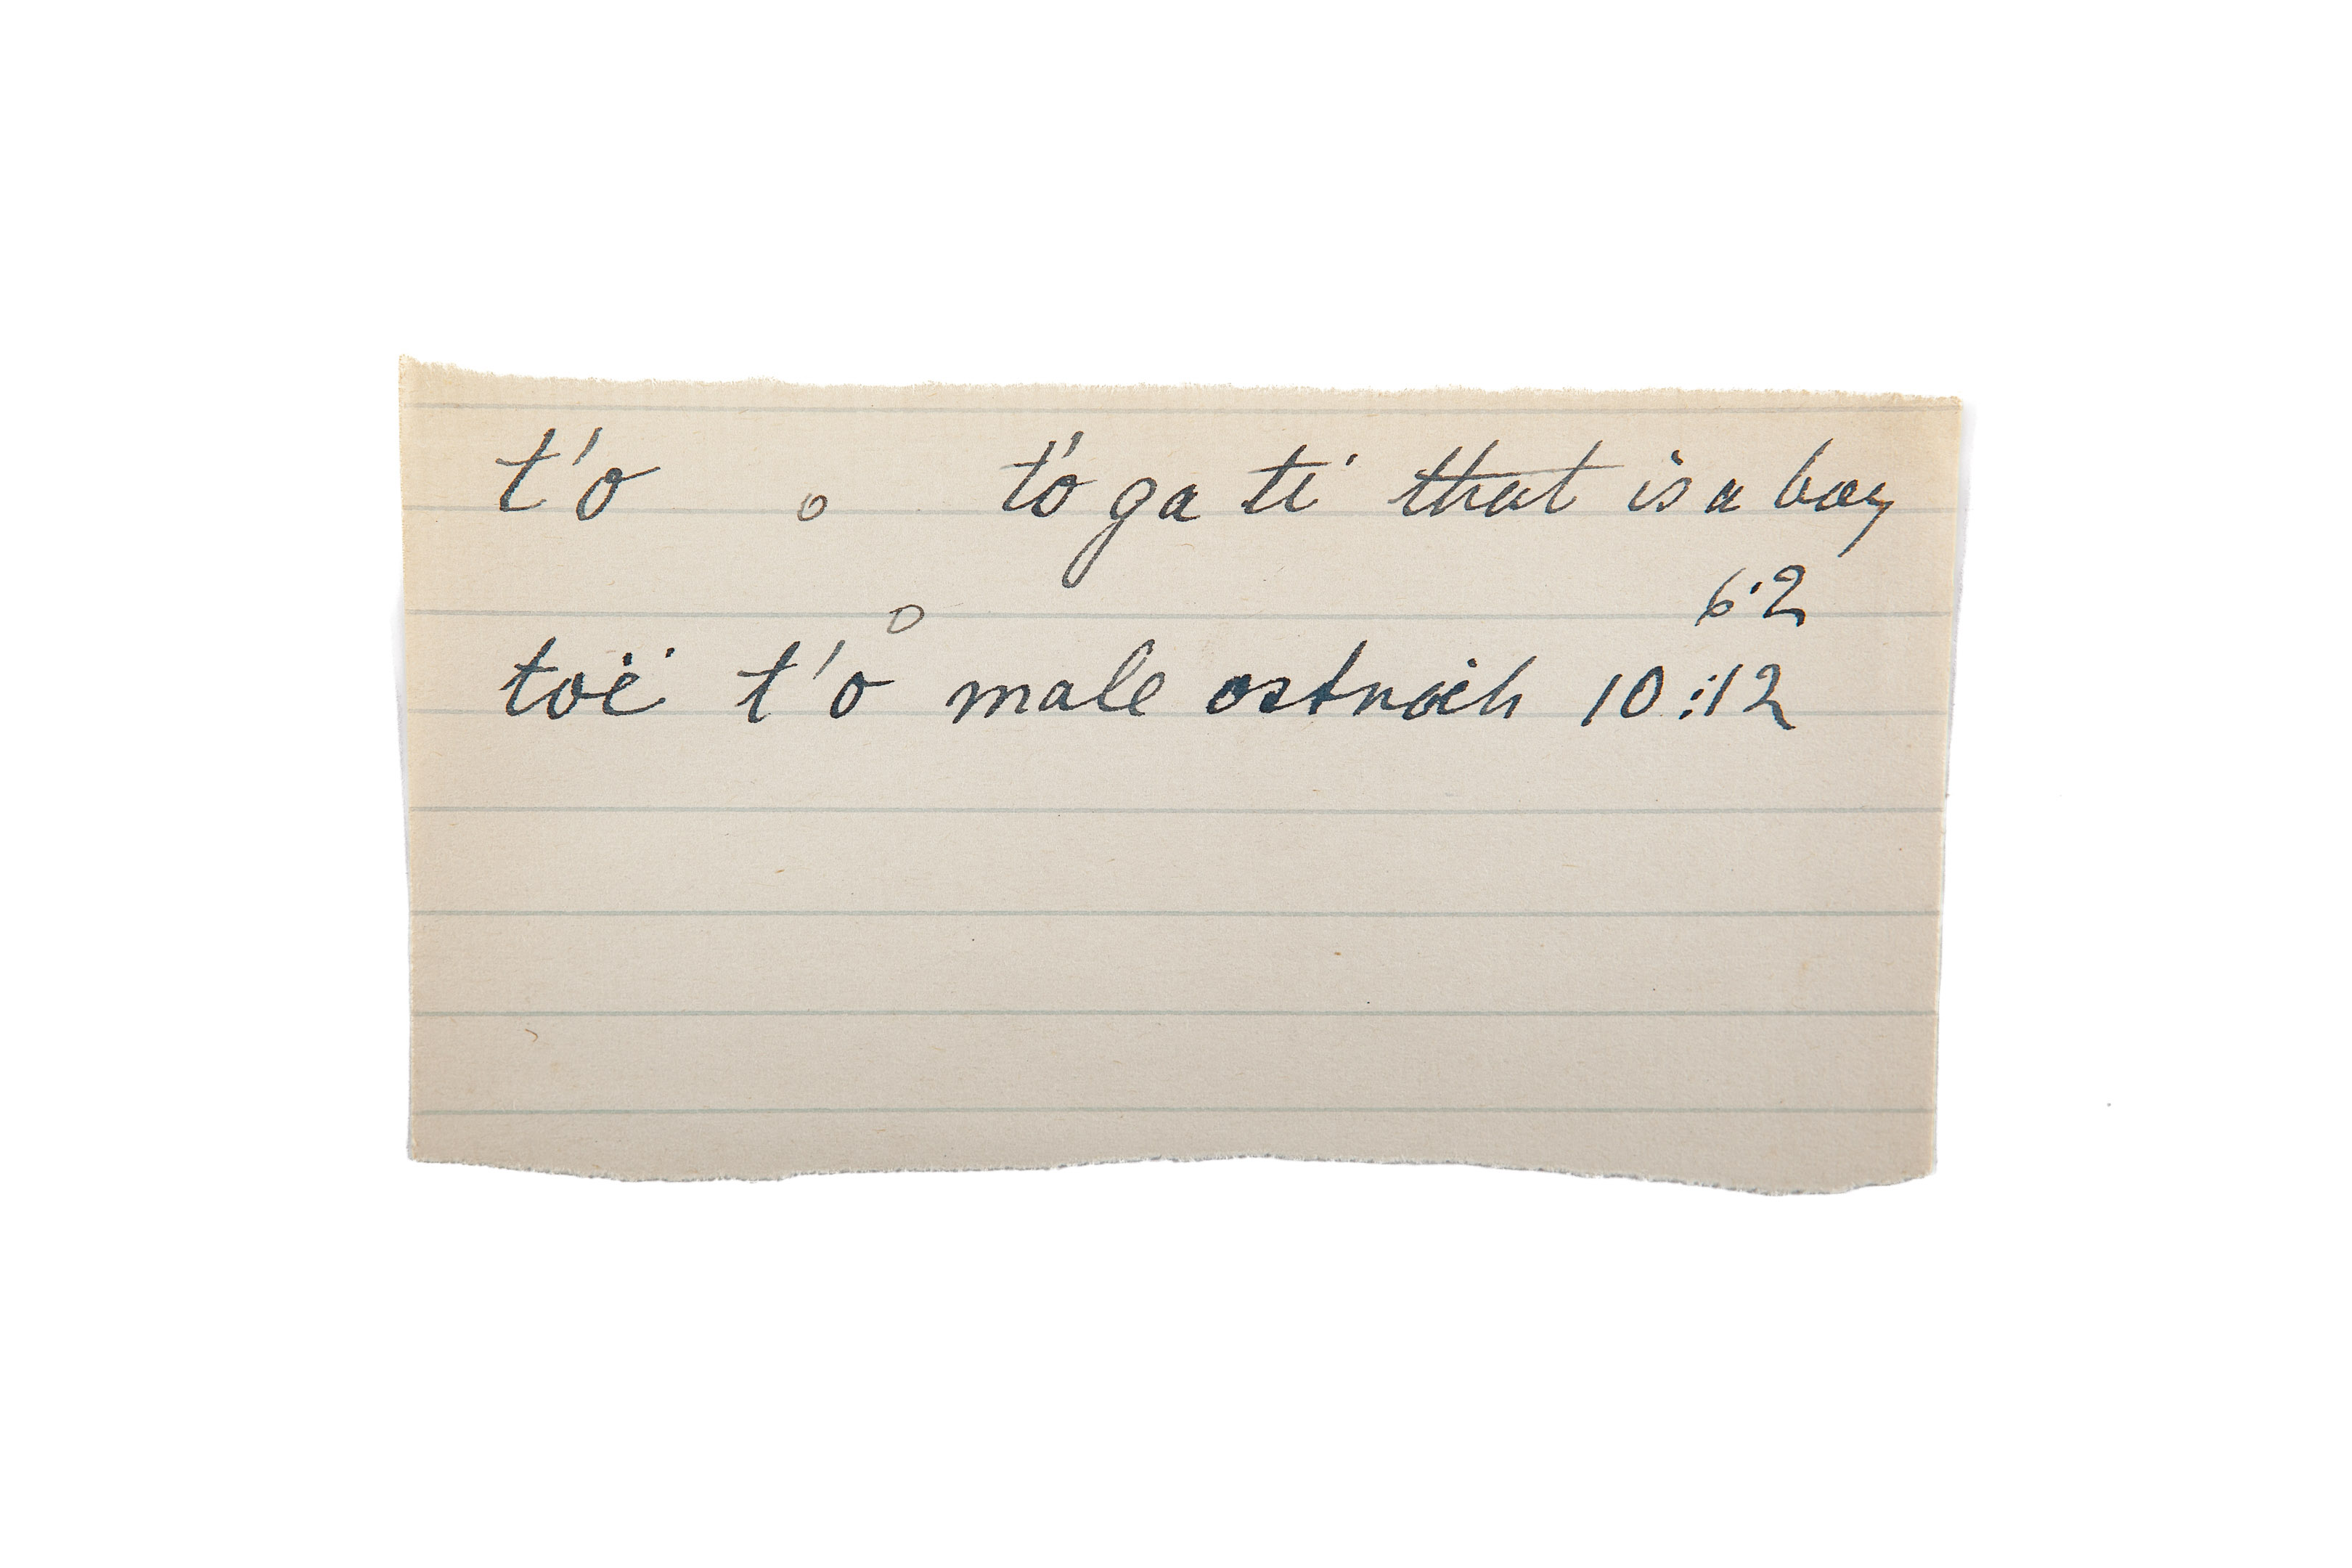 t'o o t'o ga ti that is a boy
6:2
o
toë t'o male ostrich 10:12